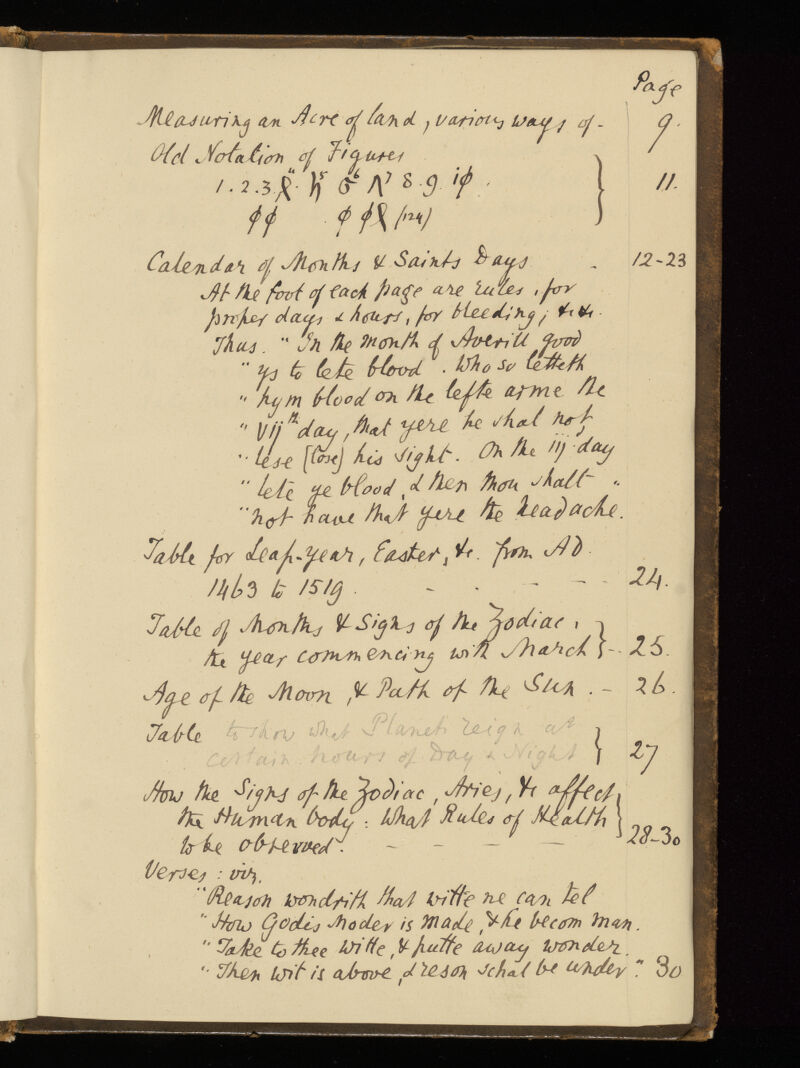 Page
Measuring an Acre of land, various ways of - 9.
Old Notation of Figures
1. 2. 3. 8. 9. iϕ. } 11.
ϕϕ ϕϕ (124)
Calendar of Months & Saints Days - 12-23
At the foot of each page are rules, for
proper days & hours, for bleeding; &c &c.
Thus. "In the month of Averill good
" ys to lete blood. Who so letteth
" hym blood on the lefte arme the
" Vijth day, that yere he shal not,
" lese [lose] his sight. On the iij day
" lete ye blood, & then thou shalt "
" not have that yere the headache.
Table for Leap-year, Easter, &c. from AD.
1463 to 1519. - - - - 24.
Table of Months & Signs of the Zodiac,
the year commencing with March } - 25.
Age of the Moon, & Path of the Sun. - 26.
Table to show what Planets reign at
certain hours of Day & Night } 27
How the Signs of the Zodiac, Aries, &c affect
the Human body: What Rules of Health }
to be observed. - - - - 28-30
Verses: viz.
"Reason wondrith that witte ne can tel
"How Godis Moder is made, & he becom man.
"Take to thee witte, & putte away wonder.
"Then wit is above, & reson schal be under". 30